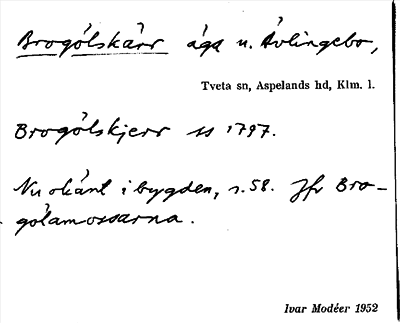 Brogölskärr äga u. Åvlingebo,
Tveta sn, Aspelands hd, Klm. l.
Brogölskjerr ss 1797.
Nu okänt i bygden, s. 58. Jfr Bro-
gölamossarna.
Ivar Modéer 1952